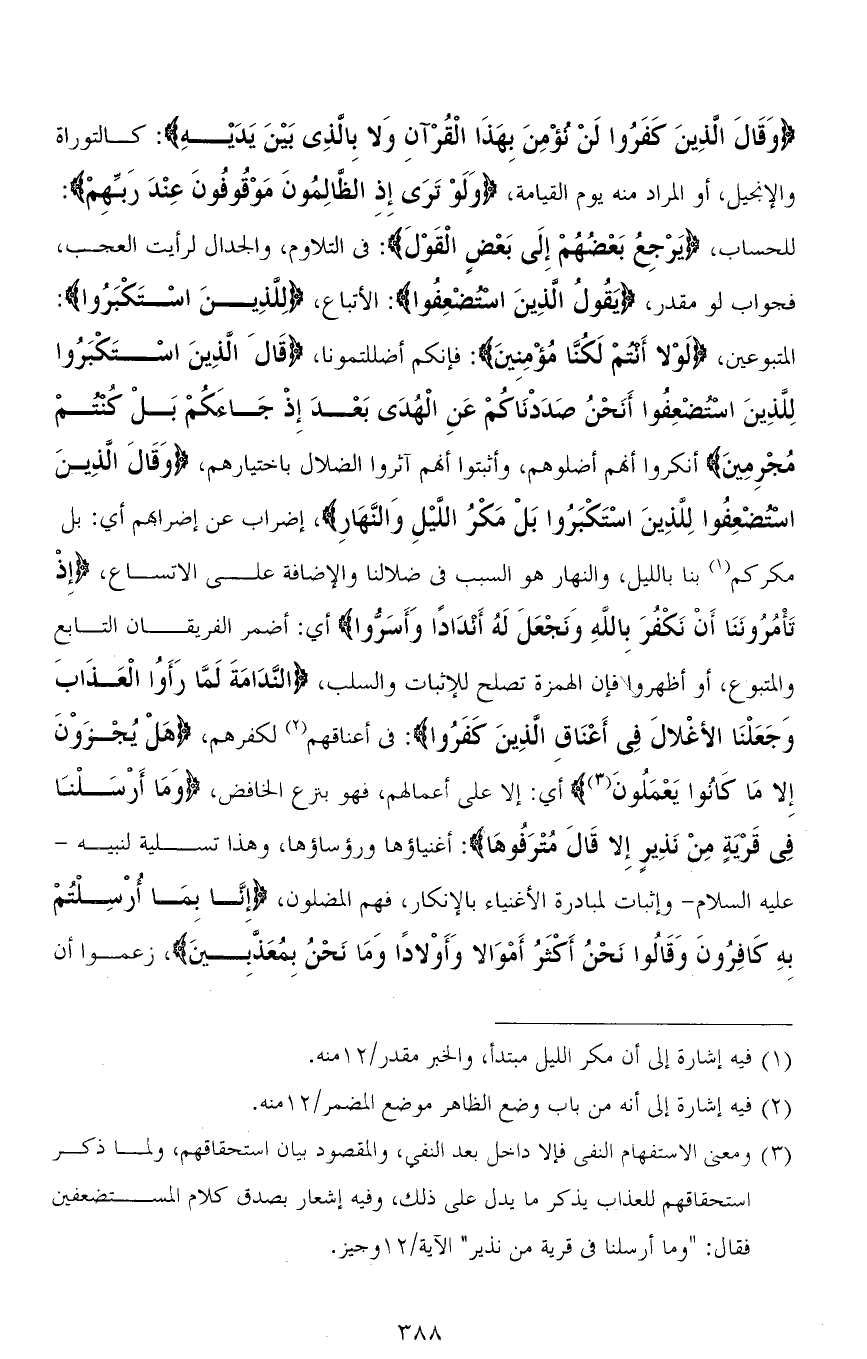 ﴿وَقَالَ الَّذِينَ كَفَرُوا لَنْ نُؤْمِنَ بِهَذَا الْقُرْآنِ وَلا بِالَّذِى بَيْنَ يَدَيْهِ﴾: كالتوراة
والإنجيل، أو المراد منه يوم القيامة، ﴿وَلَوْ تَرَى إِذِ الظَّالِمُونَ مَوْقُوفُونَ عِنْدَ رَبِّهِمْ﴾:
للحساب، ﴿يَرْجِعُ بَعْضُهُمْ إِلَى بَعْضٍ الْقَوْلَ﴾: فى التلاوم، والجدال لرأيت العجب،
فجواب لو مقدر، ﴿يَقُولُ الَّذِينَ اسْتُضْعِفُوا﴾: الأتباع، ﴿لِلَّذِينَ اسْتَكْبَرُوا﴾:
المتبوعين، ﴿لَوْلا أَنْتُمْ لَكُنَّا مُؤْمِنِينَ﴾: فإنكم أضللتمونا، ﴿قَالَ الَّذِينَ اسْتَكْبَرُوا
لِلَّذِينَ اسْتُضْعِفُوا أَنَحْنُ صَدَدْنَاكُمْ عَنِ الْهُدَى بَعْدَ إِذْ جَاءَكُمْ بَلْ كُنْتُمْ
مُجْرِمِينَ﴾ أنكروا أنهم أضلوهم، وأثبتوا أنهم آثروا الضلال باختيارهم، ﴿وَقَالَ الَّذِينَ
اسْتُضْعِفُوا لِلَّذِينَ اسْتَكْبَرُوا بَلْ مَكْرُ اللَّيْلِ وَالنَّهَارِ﴾، إضراب عن إضرابهم أي: بل
مكركم(١) بنا بالليل، والنهار هو السبب فى ضلالنا والإضافة على الاتساع، ﴿إِذْ
تَأْمُرُونَنَا أَنْ نَكْفُرَ بِاللَّهِ وَنَجْعَلَ لَهُ أَنْدَادًا وَأَسَرُّوا﴾ أي: أضمر الفريقان التابع
والمتبوع، أو أظهروا فإن الهمزة تصلح للإثبات والسلب، ﴿النَّدَامَةَ لَمَّا رَأَوُا الْعَذَابَ
وَجَعَلْنَا الأَغْلالَ فِى أَعْنَاقِ الَّذِينَ كَفَرُوا﴾: فى أعناقهم(٢) لكفرهم، ﴿هَلْ يُجْزَوْنَ
إِلا مَا كَانُوا يَعْمَلُونَ(٣)﴾ أي: إلا على أعمالهم، فهو بنزع الخافض، ﴿وَمَا أَرْسَلْنَا
فِى قَرْيَةٍ مِنْ نَذِيرٍ إِلا قَالَ مُتْرَفُوهَا﴾: أغنياؤها ورؤساؤها، وهذا تسلية لنبيه -
عليه السلام- وإثبات لمبادرة الأغنياء بالإنكار، فهم المضلون، ﴿إِنَّا بِمَا أُرْسِلْتُمْ
بِهِ كَافِرُونَ وَقَالُوا نَحْنُ أَكْثَرُ أَمْوَالا وَأَوْلادًا وَمَا نَحْنُ بِمُعَذَّبِينَ﴾، زعموا أن
(١) فيه إشارة إلى أن مكر الليل مبتدأ، والخبر مقدر/١٢منه.
(٢) فيه إشارة إلى أنه من باب وضع الظاهر موضع المضمر/١٢منه.
(٣) ومعنى الاستفهام النفى فإلا داخل بعد النفي، والمقصود بيان استحقاقهم، ولما ذكر
استحقاقهم للعذاب يذكر ما يدل على ذلك، وفيه إشعار بصدق كلام المستضعفين
فقال: "وما أرسلنا فى قرية من نذير" الآية/١٢وجيز.
٣٨٨